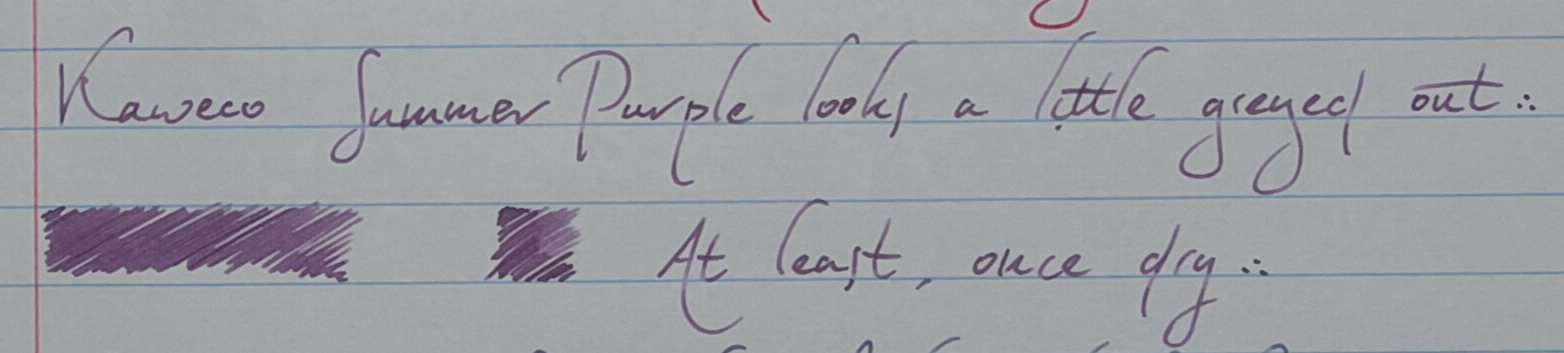 Kaweco Summer Purple looks a little greyed out ∴
At least, once dry ∴